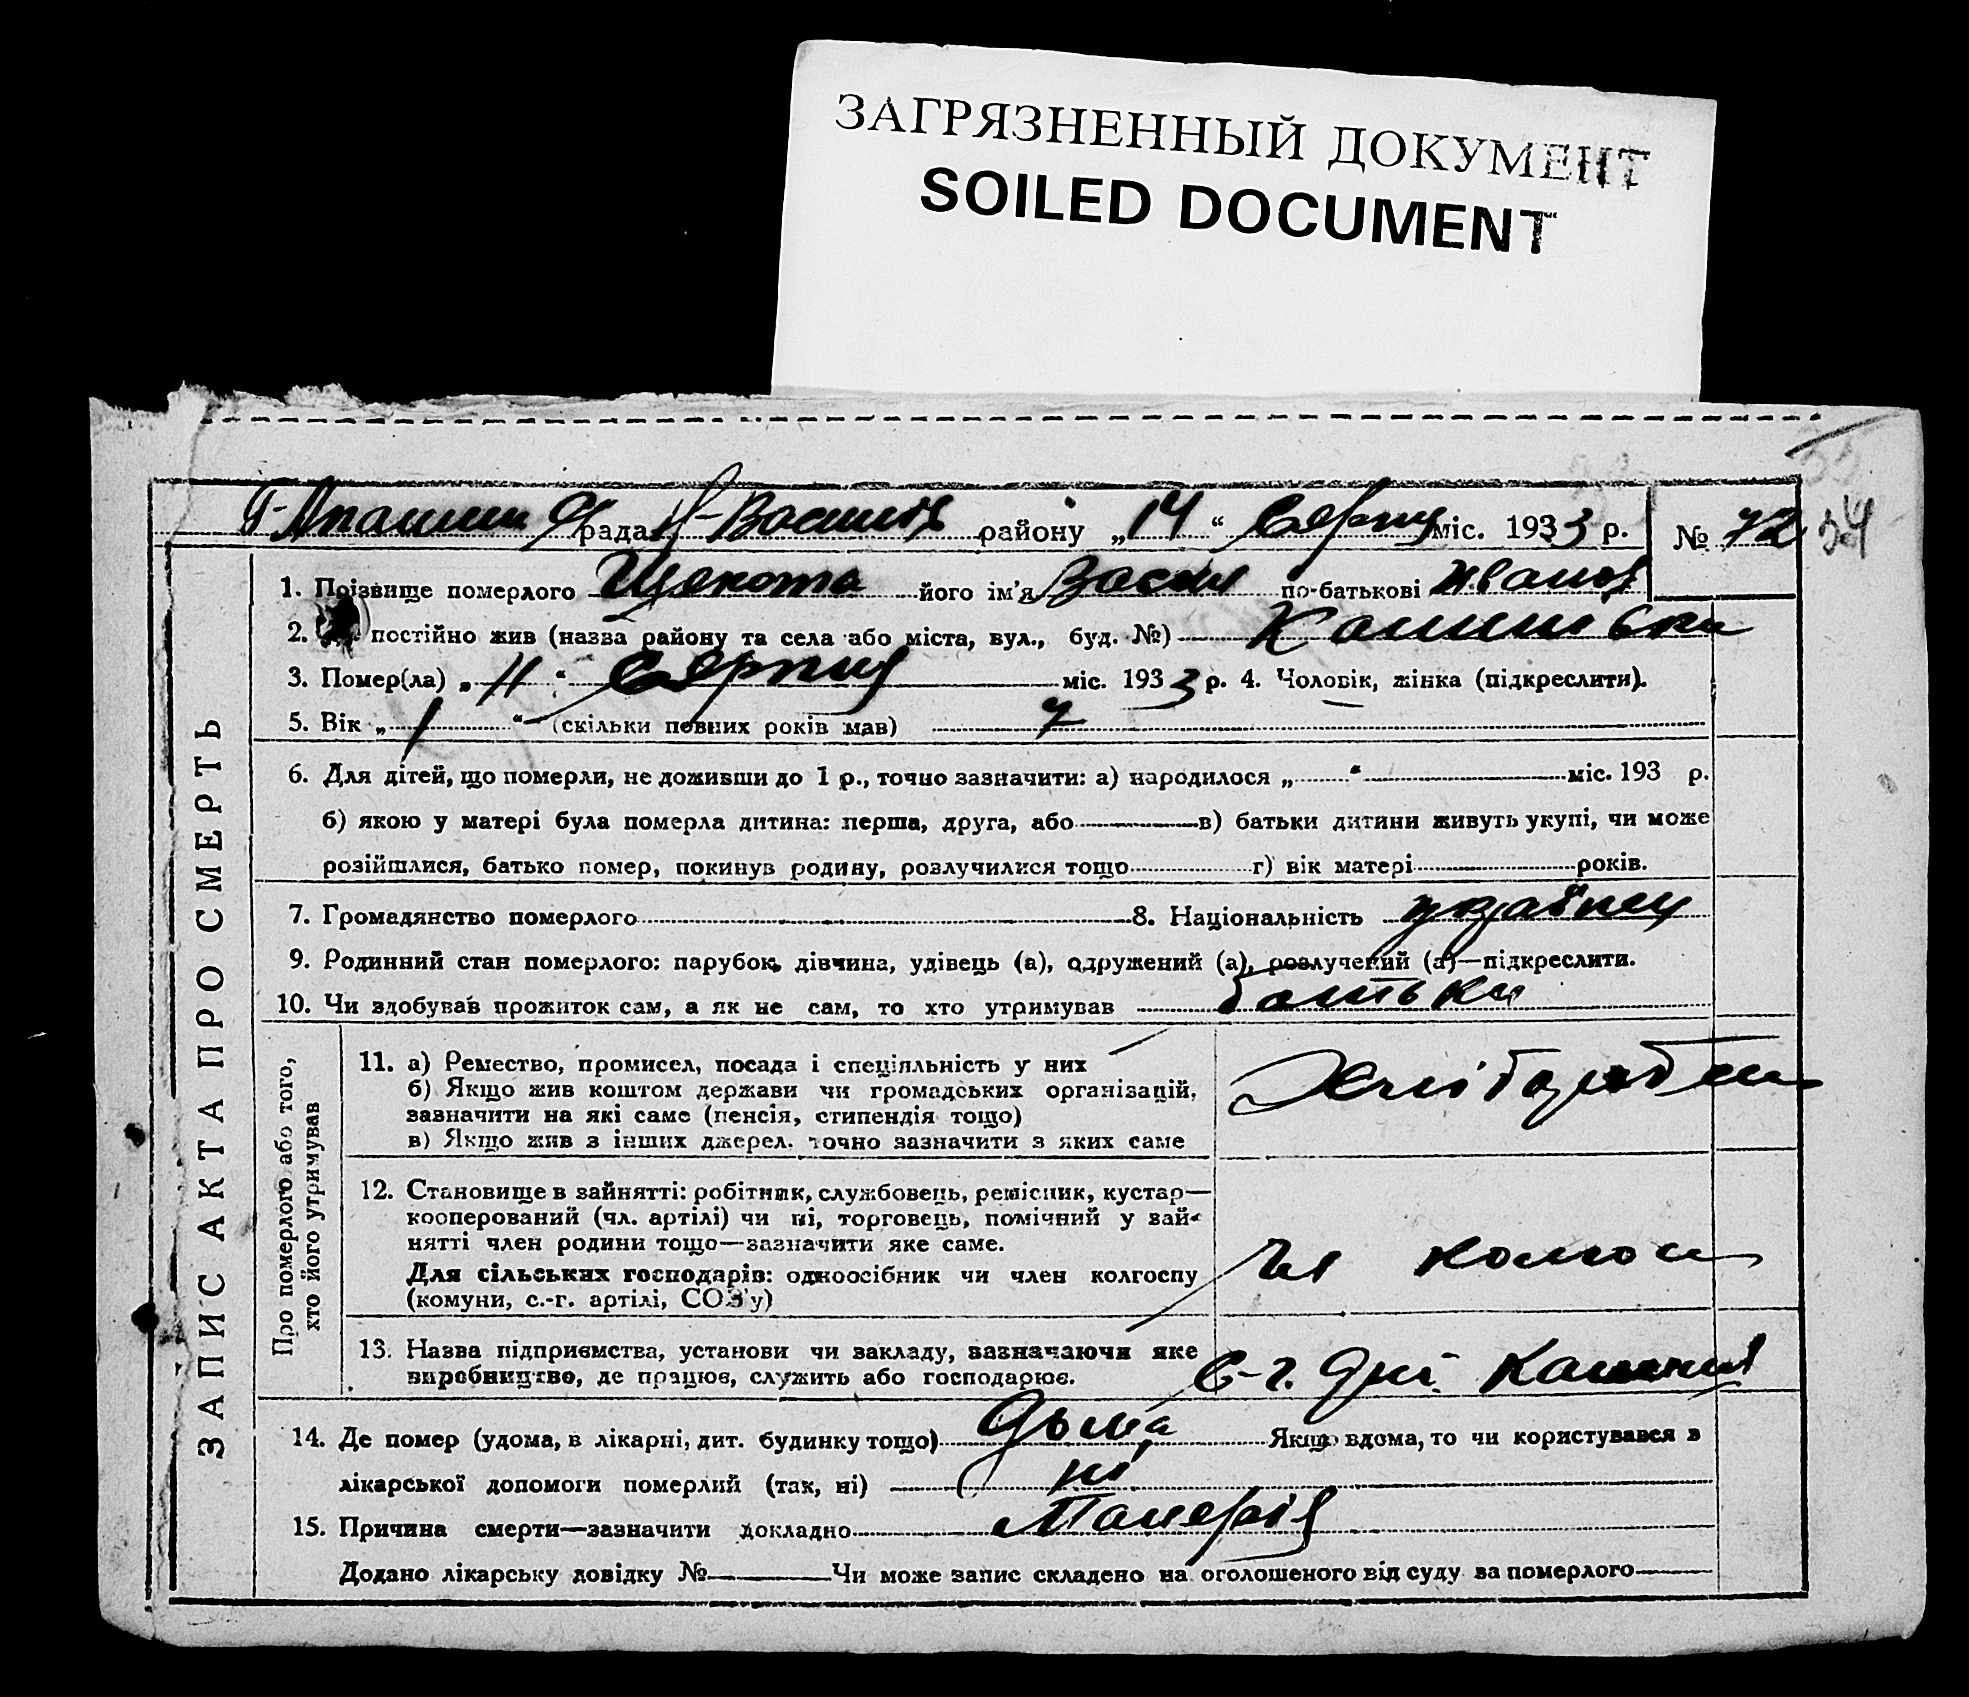 ЗАГРЯЗНЕННЫЙ ДОКУМЕНТ
SOILED DOCUMENT
рада району „14“ Серпня міс. 1933 р. № 72 34
ЗАПИС АКТА ПРО СМЕРТЬ
1. Прізвище померлого Щекота його ім'я Василь по-батькові Иванов
2. постійно жив (назва району та села або міста, вул., буд. №)
3. Помер(ла) „11“ Серпня міс. 1933 р. 4. Чоловік, жінка (підкреслити).
5. Вік „ “ (скільки повних років мав) 7
6. Для дітей, що померли, не доживши до 1 р., точно зазначити: а) народилося „ “ міс. 193 р.
б) якою у матері була померла дитина: перша, друга, або в) батьки дитини живуть укупі, чи може
розійшлися, батько помер, покинув родину, розлучилися тощо г) вік матері років.
7. Громадянство померлого 8. Національність українец
9. Родинний стан померлого: парубок, дівчина, удівець (а), одружений (а), розлучений (а)—підкреслити.
10. Чи здобував прожиток сам, а як не сам, то хто утримував батьки
Про померлого або того,
хто його утримував
11. а) Ремество, промисел, посада і спеціяльність у них
б) Якщо жив коштом держави чи громадських організацій,
зазначити на які саме (пенсія, стипендія тощо)
в) Якщо жив з інших джерел. точно зазначити з яких саме
12. Становище в зайнятті: робітник, службовець, ремісник, кустар—
кооперований (чл. артілі) чи ні, торговець, помічний у зай-
нятті член родини тощо—зазначити яке саме.
Для сільських господарів: одноосібник чи член колгоспу
(комуни, с.-г. артілі, СОЗ'у)
13. Назва підприємства, установи чи закладу, зазначаючи яке
виробництво, де працює, служить або господарює. С-г.
14. Де помер (удома, в лікарні, дит. будинку тощо) дома Якщо вдома, то чи користувався з
лікарської допомоги померлий (так, ні) ні
15. Причина смерти—зазначити докладно
Додано лікарську довідку № Чи може запис складено на оголошеного від суду за померлого